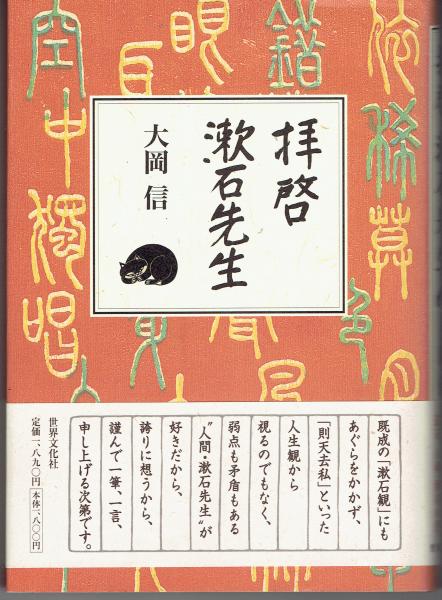 依稀暮色月
錯
眼耳
空中獨唱
拝啓
漱石先生
大岡 信
既成の「漱石観」にも
あぐらをかかず、
「則天去私」といった
人生観から
視るのでもなく、
弱点も矛盾もある
“人間・漱石先生”が
好きだから、
誇りに想うから、
謹んで一筆、一言、
申し上げる次第です。
世界文化社
定価一、八九〇円 本体一、八〇〇円